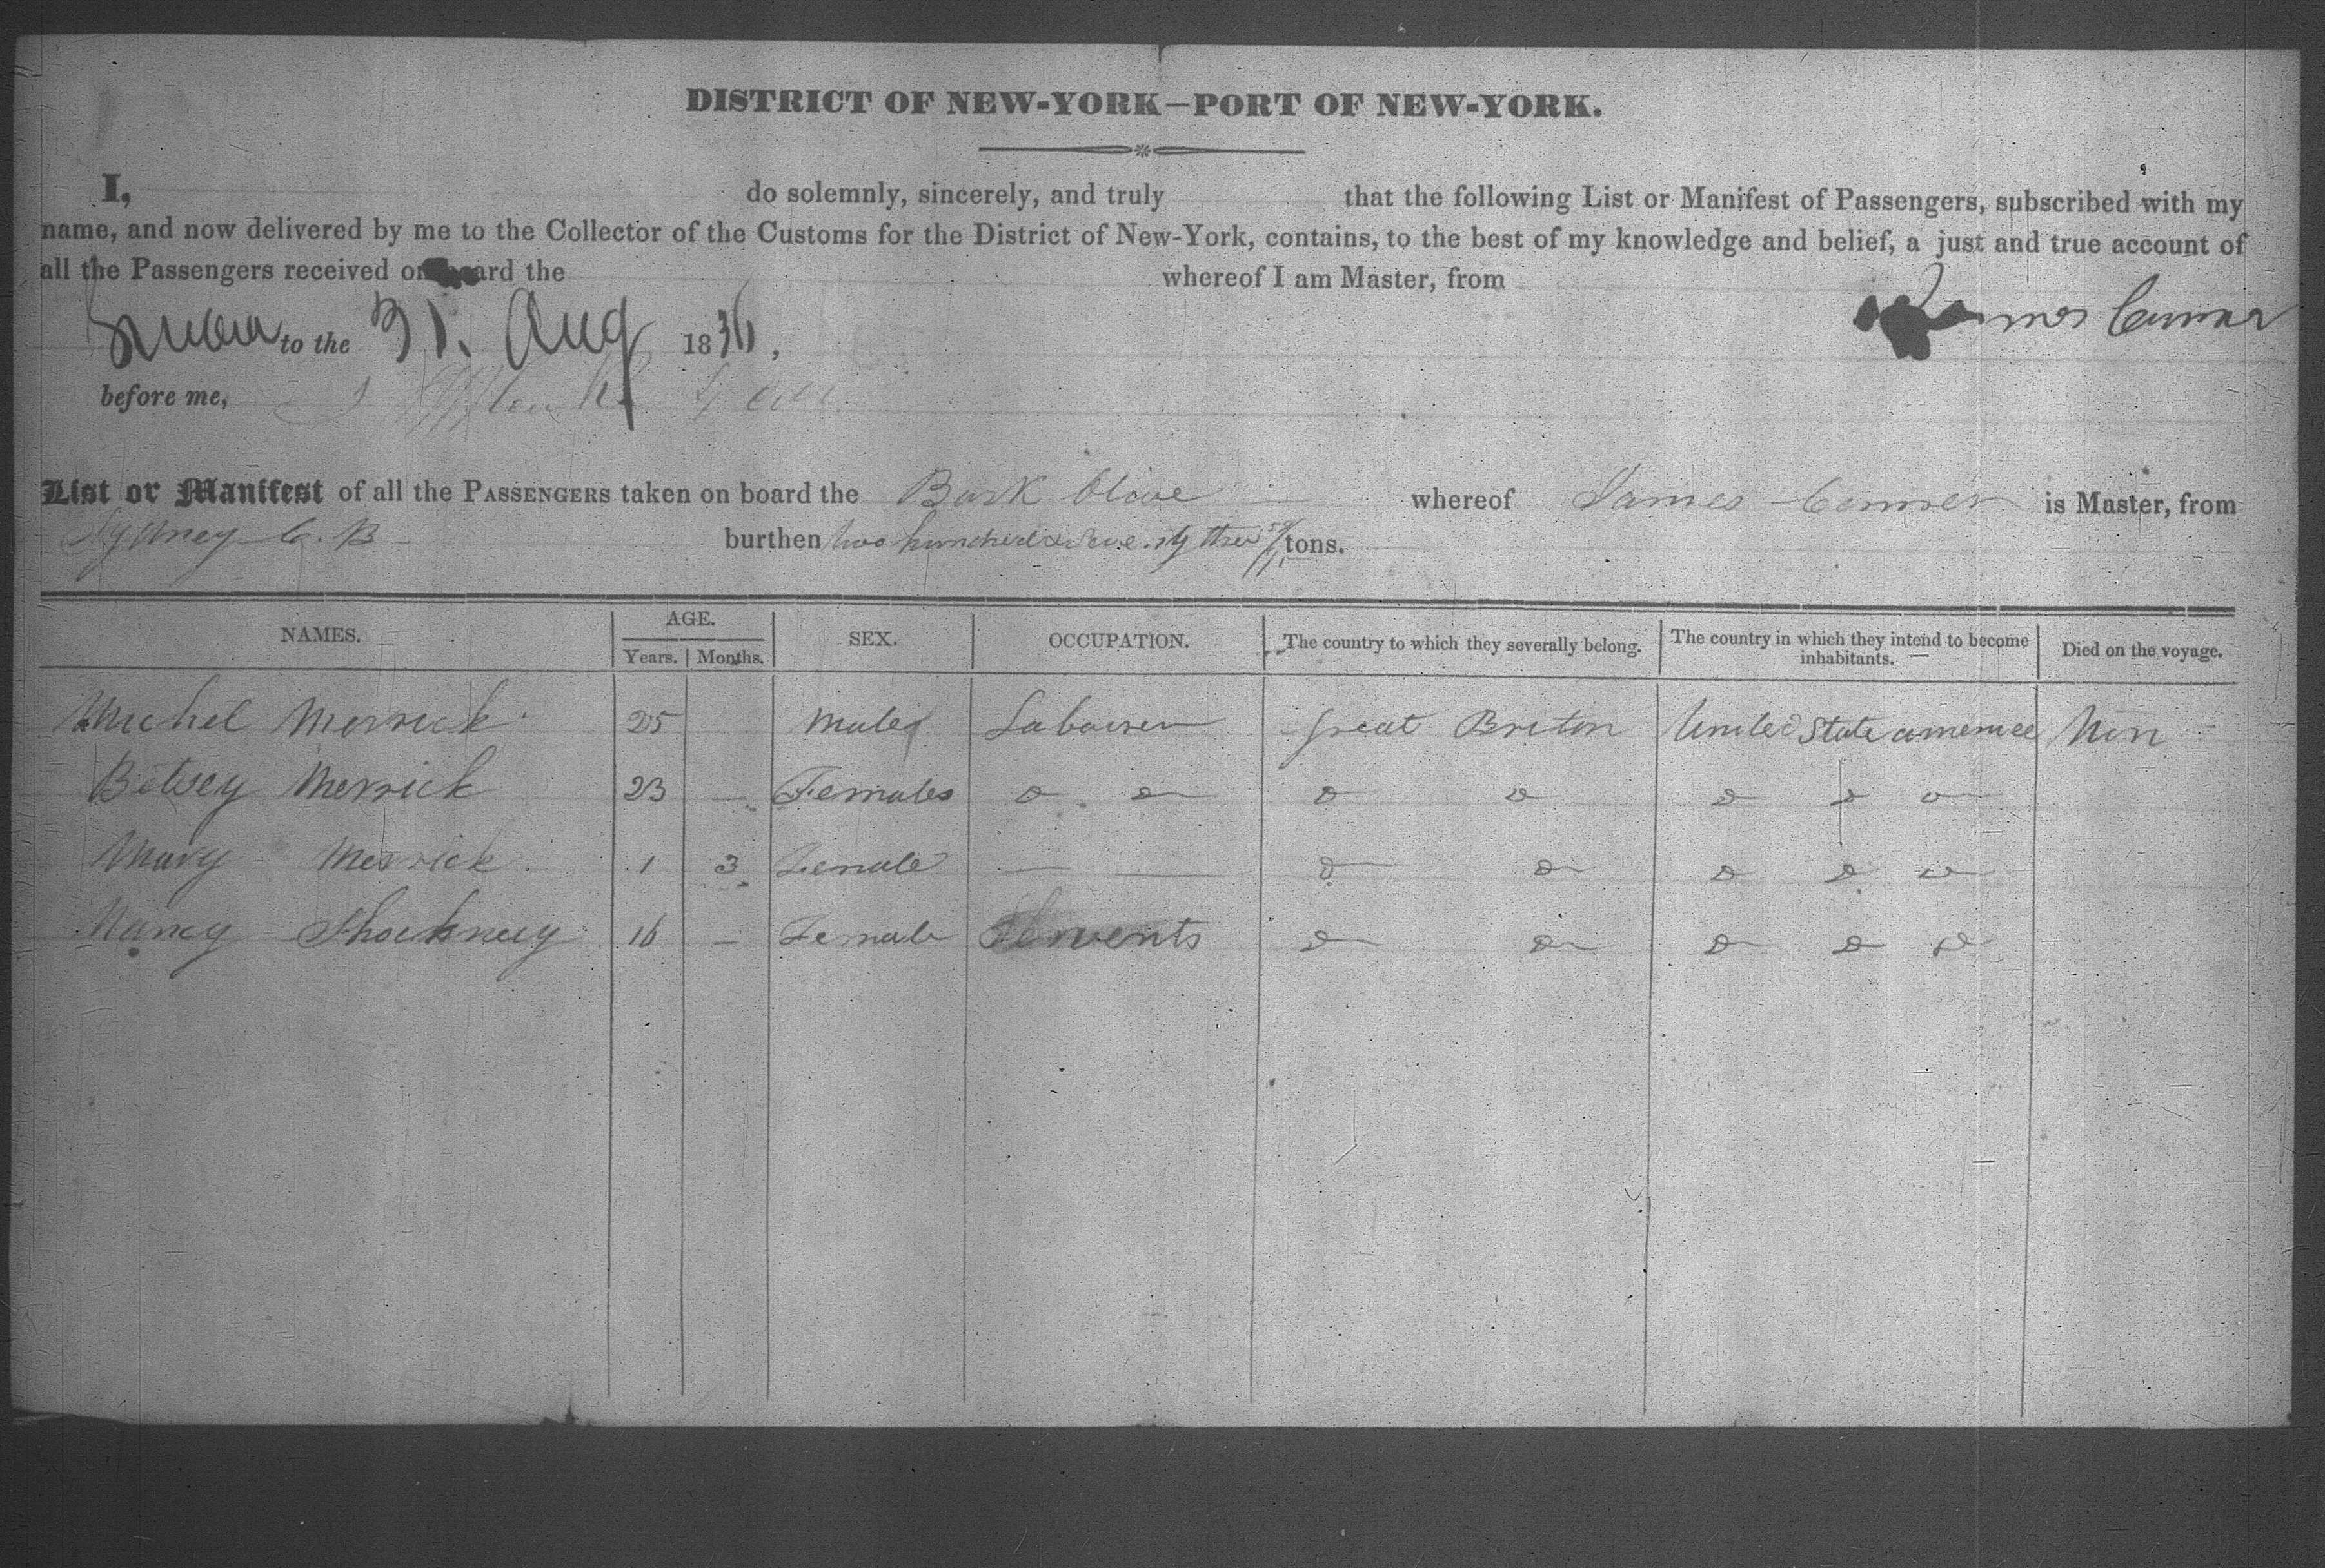 DISTRICT OF NEW-YORK—PORT OF NEW-YORK.
I, do solemnly, sincerely, and truly that the following List or Manifest of Passengers, subscribed with my
name, and now delivered by me to the Collector of the Customs for the District of New-York, contains, to the best of my knowledge and belief, a just and true account of
all the Passengers received on board the whereof I am Master, from
to the 31. Aug 1836, James
before me,
List or Manifest of all the PASSENGERS taken on board the Bark Olive whereof James Conner is Master, from
Sydney C. B burthen two hundred & Seventy three tons.
NAMES. AGE. SEX. OCCUPATION. The country to which they severally belong. The country in which they intend to become inhabitants. Died on the voyage.
Years. Months.
Michel Merrick 25 Male Labourer Great Briton United State americe Non
Betsey Merrick 23 — Females
Mary Merrick 1 3 Female — —
Nancy 16 — Female Servents